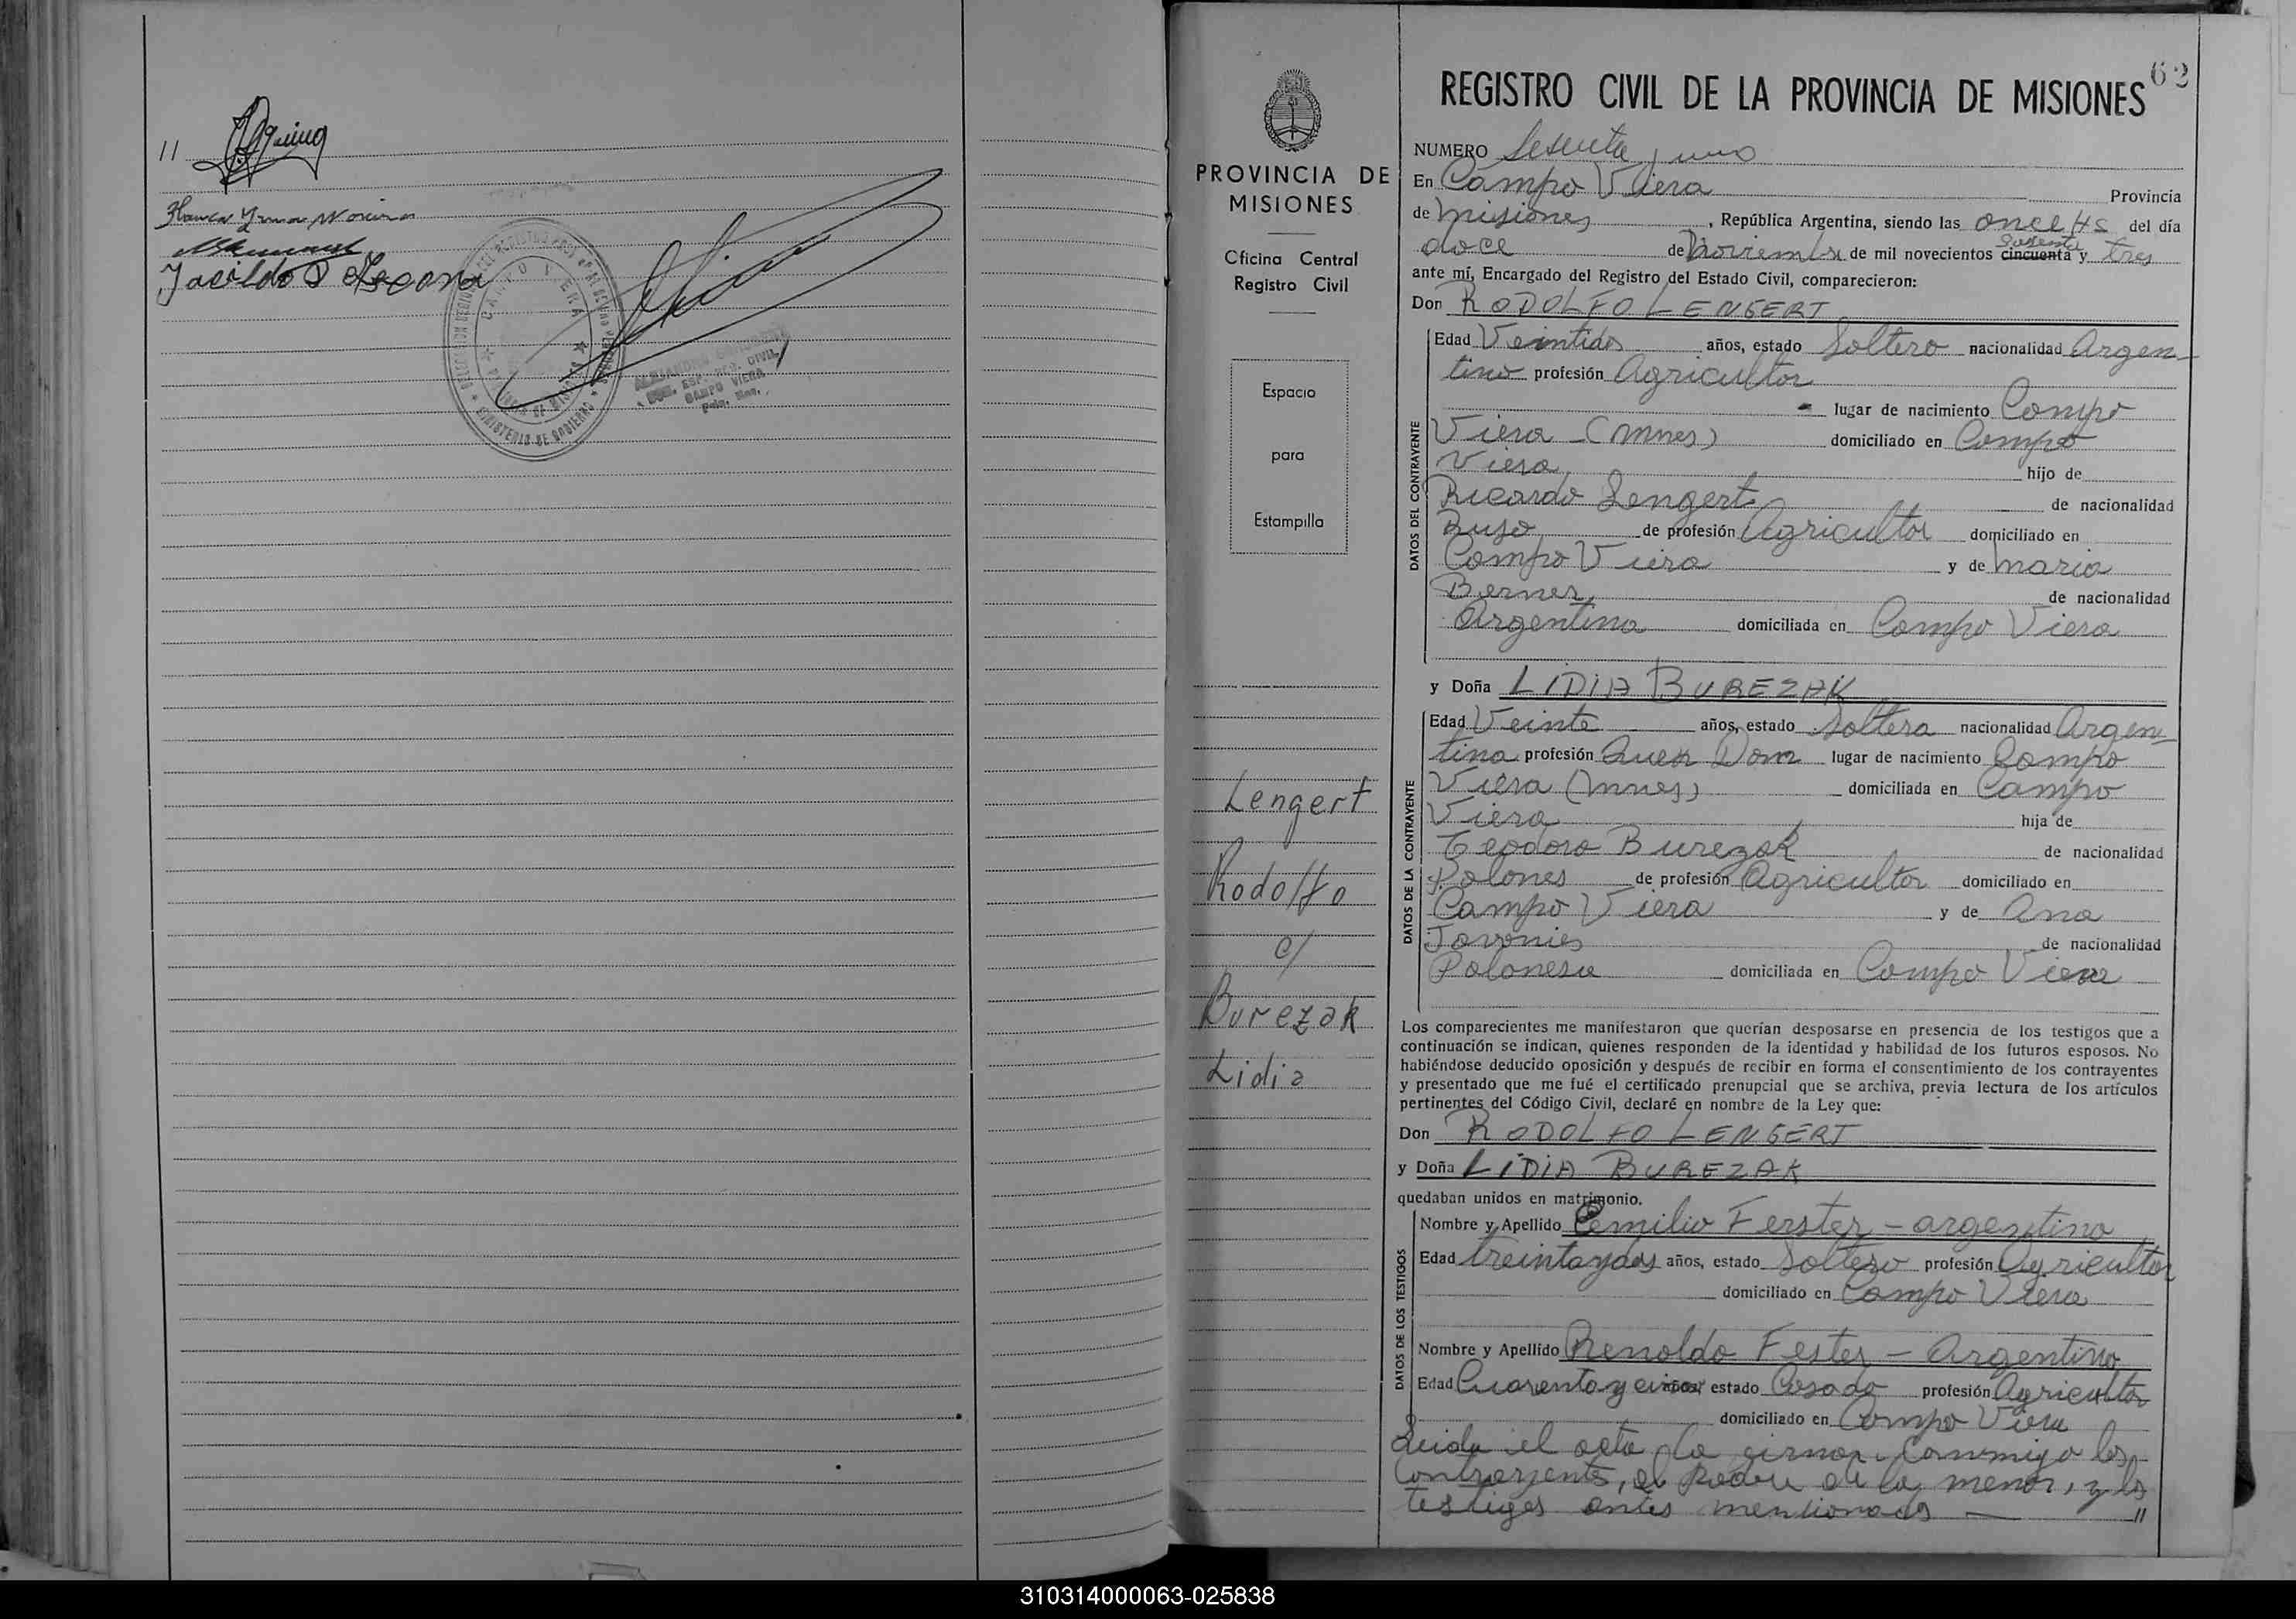 11
Blanca Irma
CAMPO VIERA
MINISTERIO DE GOBIERNO
ESP. REG. CIVIL
CAMPO VIERA
62
PROVINCIA DE
MISIONES
Oficina Central
Registro Civil
Espacio
para
Estampilla
Lengert
Rodolfo
c/
Burezak
Lidia
REGISTRO CIVIL DE LA PROVINCIA DE MISIONES
NUMERO Sesenta y uno
En Campo Viera Provincia
de Misiones, República Argentina, siendo las once Hs del día
doce de Noviembre de mil novecientos cincuenta sesenta y tres
ante mí, Encargado del Registro del Estado Civil, comparecieron:
Don RODOLFO LENGERT
DATOS DEL CONTRAYENTE
Edad Veintidos años, estado Soltero nacionalidad Argen-
tino profesión Agricultor
lugar de nacimiento Campo
Viera - (Mnes) domiciliado en Campo
Viera, hijo de
Ricardo Lengert de nacionalidad
Ruso de profesión Agricultor domiciliado en
Campo Viera y de Maria
Berner, de nacionalidad
Argentina domiciliada en Campo Viera
y Doña LIDIA BUREZAK
DATOS DE LA CONTRAYENTE
Edad Veinte años, estado Soltera nacionalidad Argen-
tina profesión Queh Dom lugar de nacimiento Campo
Viera (Mnes) domiciliada en Campo
Viera hija de
Teodoro Burezak de nacionalidad
Polones de profesión Agricultor domiciliado en
Campo Viera y de Ana
de nacionalidad
Polonesa domiciliada en Campo Viera
Los comparecientes me manifestaron que querían desposarse en presencia de los testigos que a
continuación se indican, quienes responden de la identidad y habilidad de los futuros esposos. No
habiéndose deducido oposición y después de recibir en forma el consentimiento de los contrayentes
y presentado que me fué el certificado prenupcial que se archiva, previa lectura de los artículos
pertinentes del Código Civil, declaré en nombre de la Ley que:
Don RODOLFO LENGERT
y Doña LIDIA BUREZAK
quedaban unidos en matrimonio.
DATOS DE LOS TESTIGOS
Nombre y Apellido Emilio Ferster - argentino
Edad treinta y dos años, estado Soltero profesión Agricultor
domiciliado en Campo Viera
Nombre y Apellido Renoldo Fester - Argentino
Edad Cuarenta y cinco años, estado Casado profesión Agricultor
domiciliado en Campo Viera
Leida el acta la firman conmigo los
contrayentes, el padre de la menor, y los
testigos antes mencionados — "
310314000063-025838